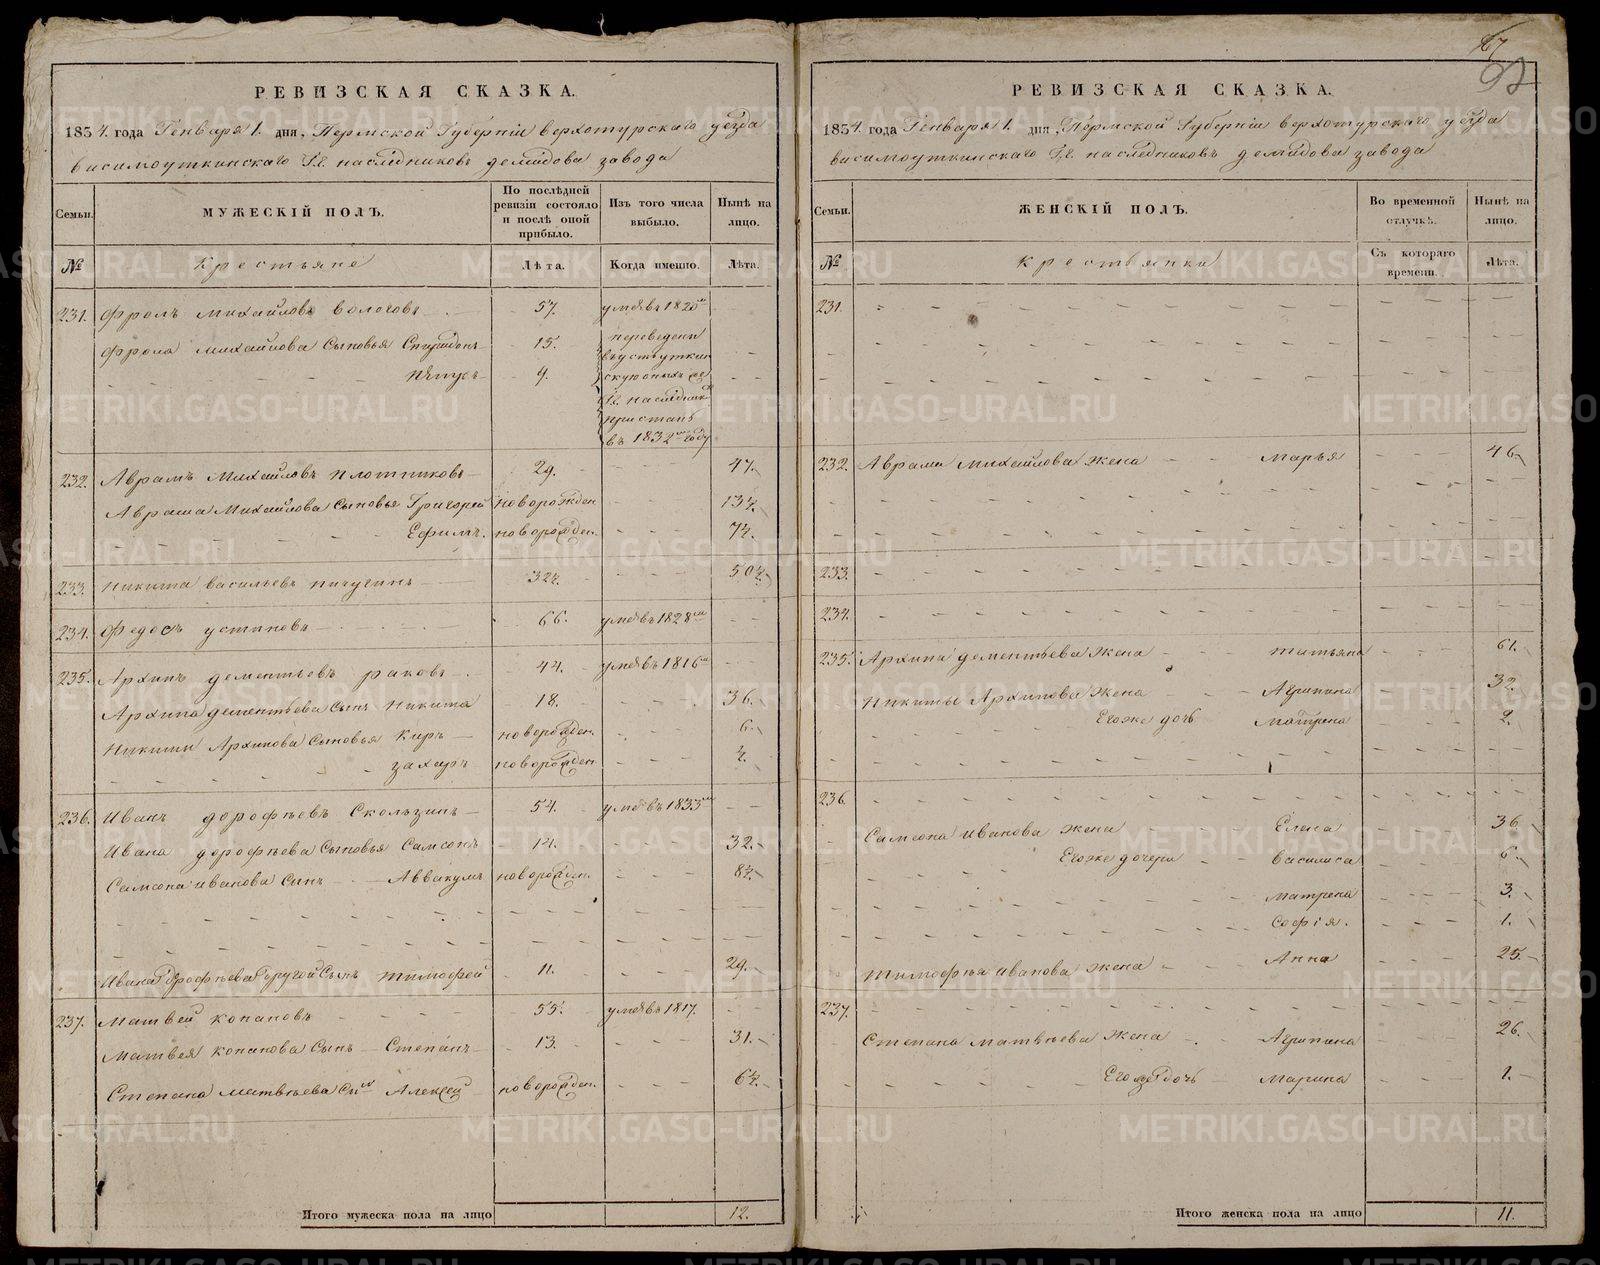 РЕВИЗСКАЯ СКАЗКА.
1834. года Генваря 1. дня, Пермской Губерніи верхотурскаго уезда
висимоуткинскаго Г.г. наслѣдниковъ демидова завода
Семьи.
МУЖЕСКІЙ ПОЛЪ.
По послѣдней ревизіи состояло и послѣ оной прибыло.
Изъ того числа выбыло.
Нынѣ на лицо.
№ Крестьяне Лѣта. Когда именно. Лѣта.
231. Фролъ михайловъ вологовъ 57. умре въ 1820м
Фрола михайлова Сыновья Спиридонъ 15. переведены
въ устьуткин
9. скую оныхъ же
Г.г. наслѣдник
пристань
въ 1832м году
232. Аврамъ Михайловъ плотниковъ 29. 47.
Аврама Михайлова Сыновья Григорей новорожден 13½.
Ефимъ. новорожден. 7½.
233. никита васильевъ пичугинъ 32½. 50½.
234. Федосъ устиновъ 66. умре въ 1828м
235. Архипъ дементьевъ раковъ 44. умре въ 1816м
Архипа дементьева сынъ никита 18. 36.
никиты Архипова Сыновья Киръ новорожден. 6.
захаръ новорожден ½.
236. Иванъ дорофѣевъ Скользинъ 54. умре въ 1833м
Ивана дорофѣева Сыновья Самсонъ 14. 32.
Самсона иванова Сынъ Аввакумъ новорожден. 8½.
Ивана дорофѣева другой Сынъ тимофей 11. 29.
237. матвей копановъ 55. умре въ 1817.
матвея копанова Сынъ Степанъ 13. 31.
Степана матвѣева Сынъ Алексей новорожден. 6½.
Итого мужеска пола на лицо 12.
67
РЕВИЗСКАЯ СКАЗКА.
1834. года Генваря 1. дня, Пермской Губерніи верхотурскаго уезда
висимоуткинскаго Г.г. наследниковъ демидова завода
Семьи.
ЖЕНСКІЙ ПОЛЪ.
Во временной отлучкѣ.
Нынѣ на лицо.
№ крестьянки Съ котораго времени. Лѣта.
231.
232. Аврама михайлова жена Марья 46.
233.
234.
235. Архипа дементьева жена татьяна 61.
никиты Архипова жена Агрипина 32.
Егоже дочь матрена 2.
236.
Самсона иванова жена Елена 36.
Егоже дочери василиса 6.
матрена 3.
софія. 1.
тимофѣя иванова жена Анна 25.
237.
Степана матвѣева жена Агрипина 26.
Егоже дочь марина 1.
Итого женска пола на лицо 11.
METRIKI.GASO-URAL.RU